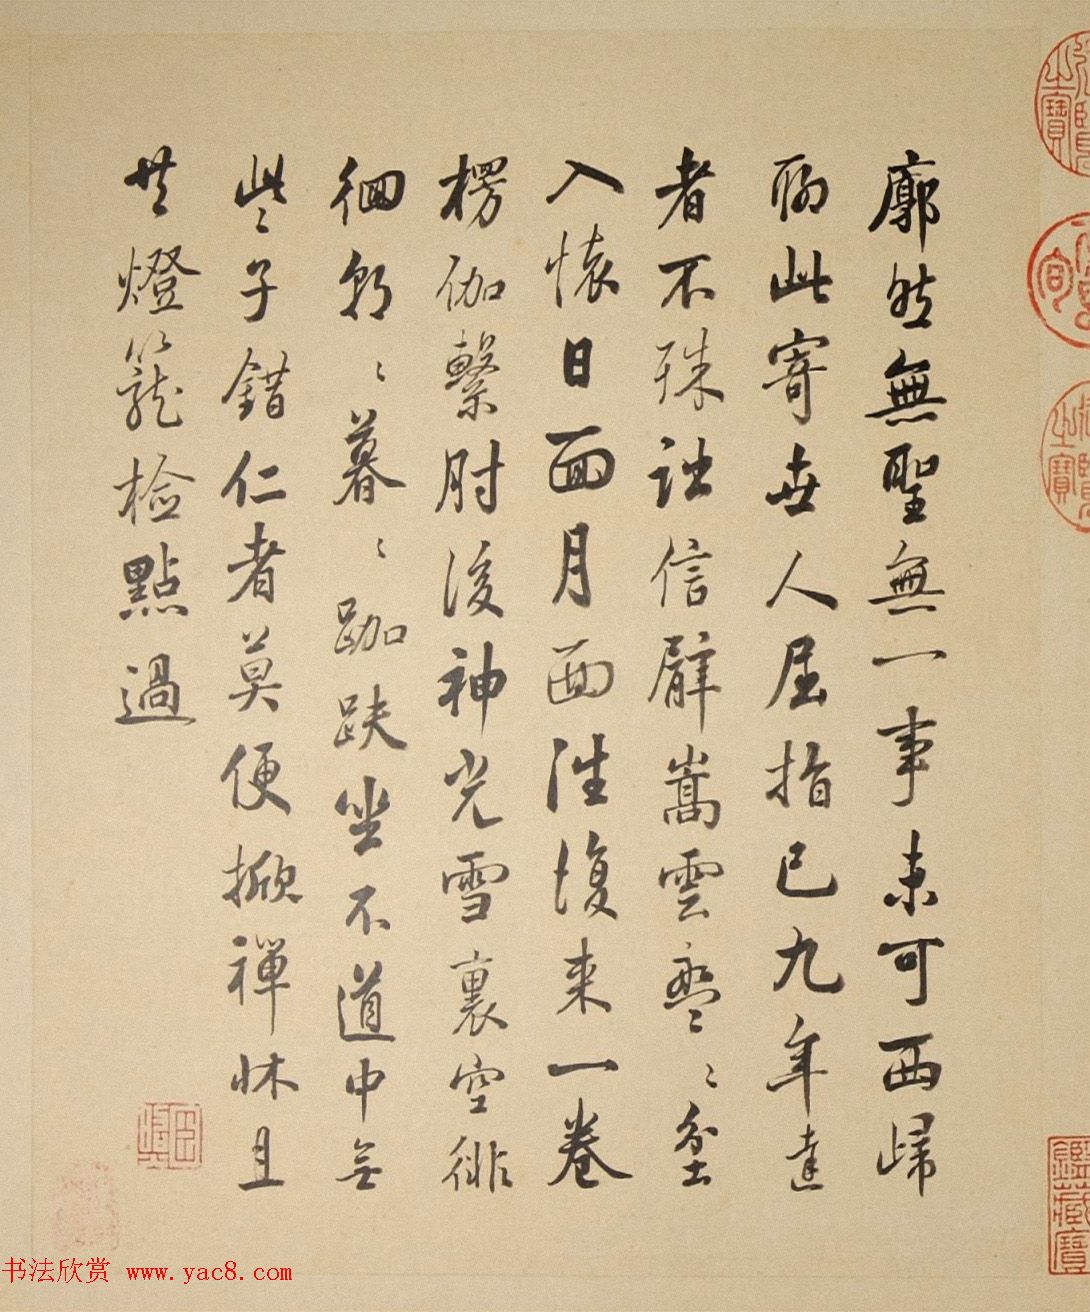 廓然無聖無一事未可西歸
聊此寄世人屈指已九年達
者不殊詘信臂嵩雲靄靄坌
入懷日面月面往復來一卷
楞伽繫肘後神光雪裏空徘
徊朝〻暮〻跏趺坐不道中無
些子錯仁者莫便掀禪牀且
共燈籠檢點過
书法欣赏 www.yac8.com